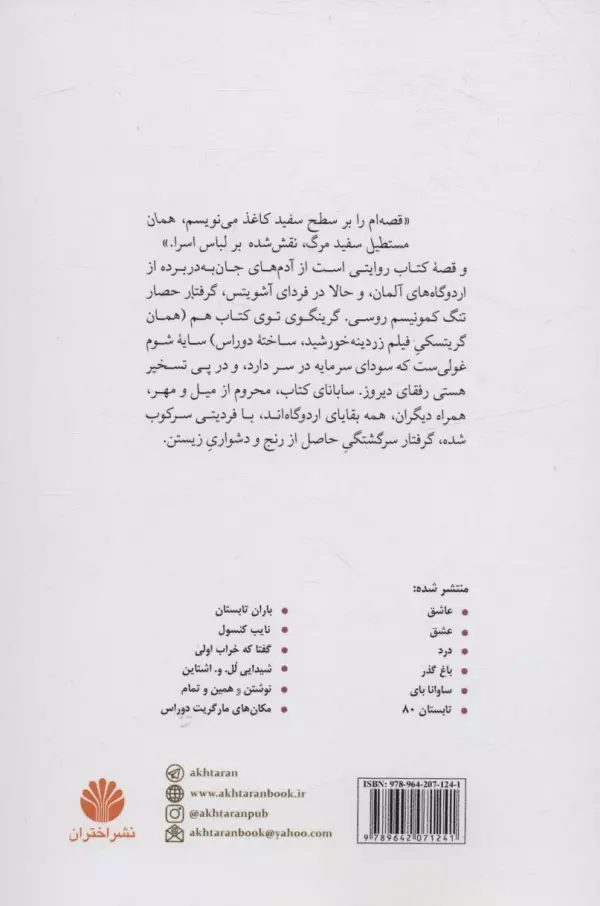 «قصه‌ام را بر سطح سفید کاغذ می‌نویسم، همان
مستطیل سفید مرگ، نقش‌شده بر لباس اسرا.»
و قصهٔ کتاب روایتی است از آدم‌های جان‌به‌دربرده از
اردوگاه‌های آلمان، و حالا در فردای آشویتس، گرفتار حصار
تنگ کمونیسم روسی. گرینگوی توی کتاب هم (همان
گریتسکیِ فیلم زردینه‌خورشید، ساختهٔ دوراس) سایهٔ شوم
غولی‌ست که سودای سرمایه در سر دارد، و در پی تسخیر
هستی رفقای دیروز. سابانای کتاب، محروم از میل و مهر،
همراه دیگران، همه بقایای اردوگاه‌اند، با فردیتی سرکوب
شده، گرفتار سرگشتگیِ حاصل از رنج و دشواریِ زیستن.
منتشر شده:
• عاشق
• عشق
• درد
• باغ گذر
• ساوانا بای
• تابستان ۸۰
• باران تابستان
• نایب کنسول
• گفتا که خراب اولی
• شیدایی لُل. و. اشتاین
• نوشتن و همین و تمام
• مکان‌های مارگریت دوراس
akhtaran
www.akhtaranbook.ir
@akhtaranpub
akhtaranbook@yahoo.com
نشر اختران
ISBN: 978-964-207-124-1
9 789642 071241